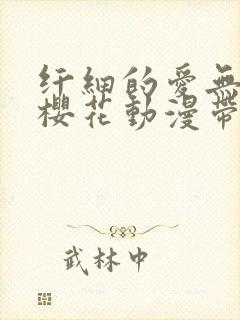 纤細的愛無
櫻花動漫帶
武林中